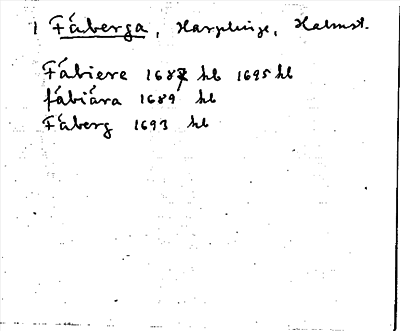 1 Fåberga, Harplinge, Halmst.
Fåbiere 1687 hb 1695 hb
fåbiära 1689 hb
Fåberg 1693 hb